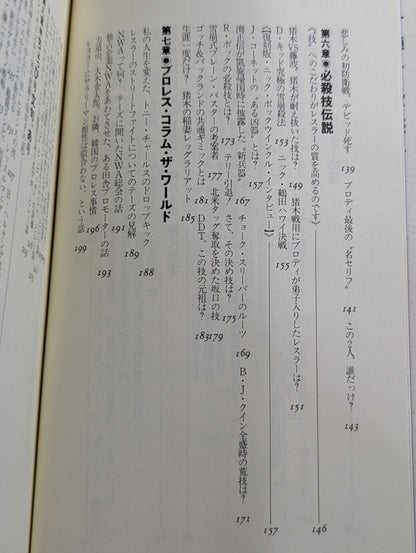 悲しみの初防衛戦、デビッド死す 139 ブロディ最後の“名セリフ” 141 この2人、誰だっけ? 143
第六章●必殺技伝説
《“技”へのこだわりがレスラーの質を高めるのです》 146
猪木VS藤波、猪木が耐え抜いた技は? 149 猪木戦用にブロディが弟子入りしたレスラーは? 151
D・キッド究極の雪崩殺法 153 ニック・鶴田ハワイ決戦 155
【復刻版・ニック・ボックウィンクル・インタビュー】 157
J・コーネットの“ある凶器”とは? 167 チョーク・スリーパーのルーツ 169 B・J・クイン全盛時の荒技は? 171
剛竜
R・ボックの必殺技とは? 173 テリー引退!さて、その決め技は? 175
雪崩式ブレーン・バスターの考案者 177 北米タッグ奪取を決めた坂口の技 179
ゴッチ&バックランドの共通ギミックとは 181 DDT、この技の元祖は? 183
生涯一度だけ?猪木の稲妻レッグラリアット 185
第七章●プロレス・コラム・ザ・ワールド
私の人生を変えた、トニー・チャールスのドロップキック 188
レスラーのストリートファイトについてのテーズの見解 189
NWAって何? テーズに聞いたNWA総会の話 191
独占企業NWAをあわてさせた、ある田舎プロモーターの話 193
力道山、大木金太郎、お隣、韓国のプロレス事情 196
という話 199